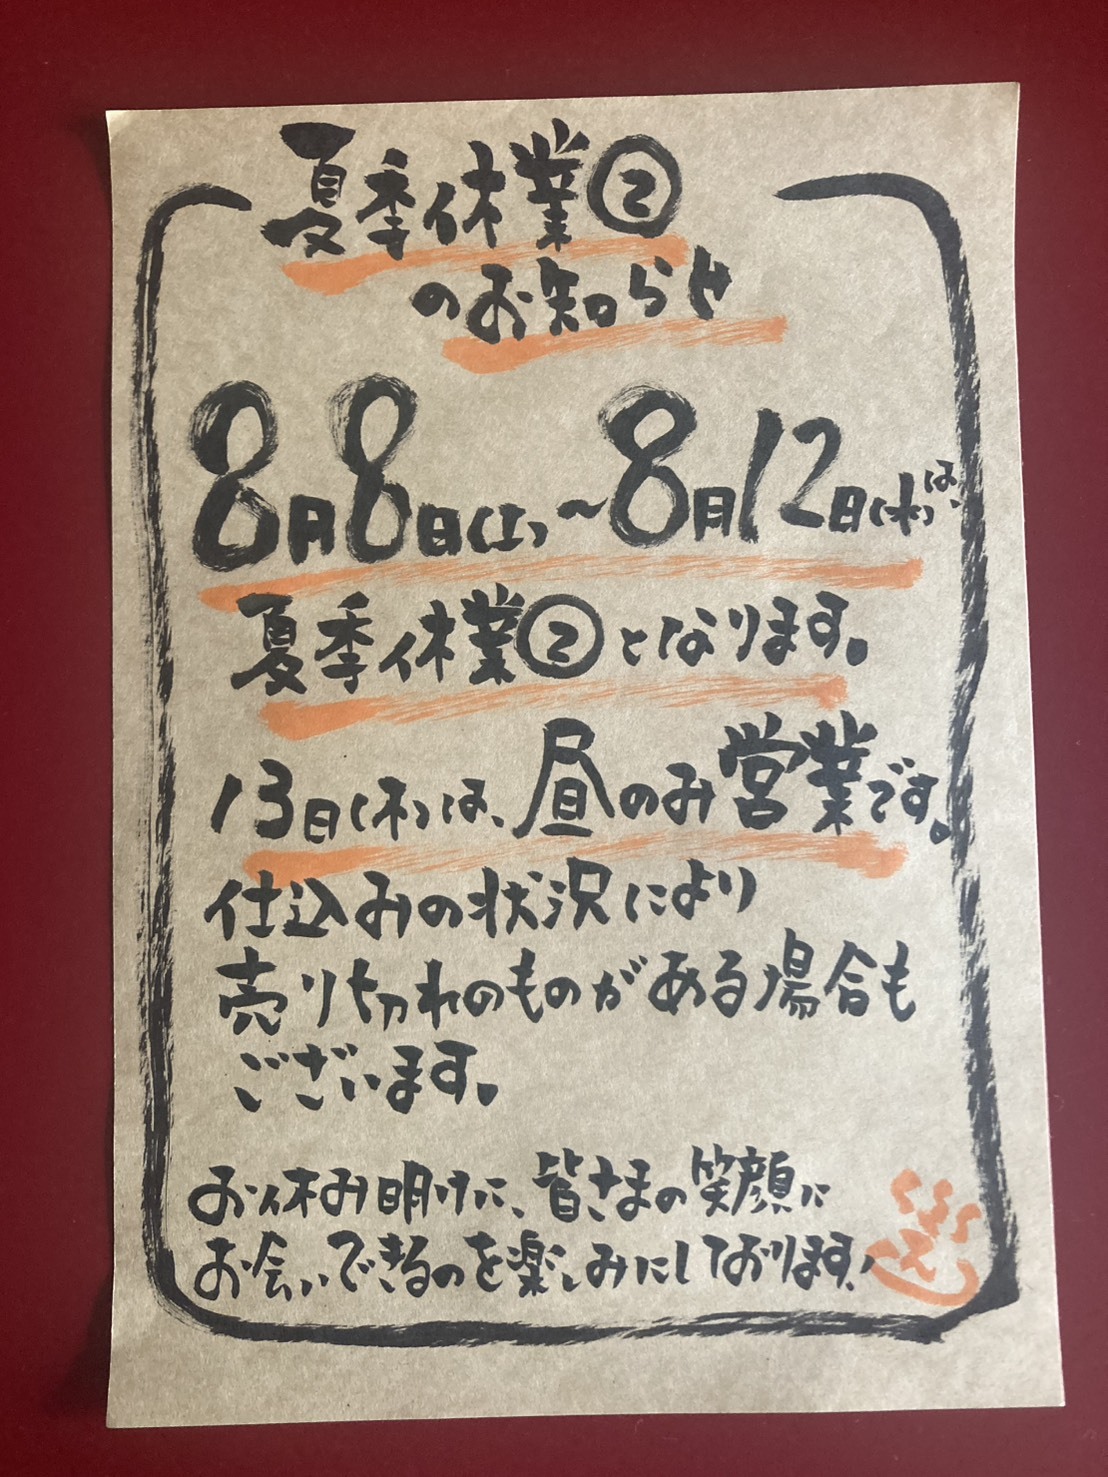 夏季休業②
のお知らせ
8月8日(土)〜8月12日(水)は、
夏季休業②となります。
13日(木)は、昼のみ営業です。
仕込みの状況により
売り切れのものがある場合も
ございます。
お休み明けに、皆さまの笑顔に
お会いできるのを楽しみにしております。